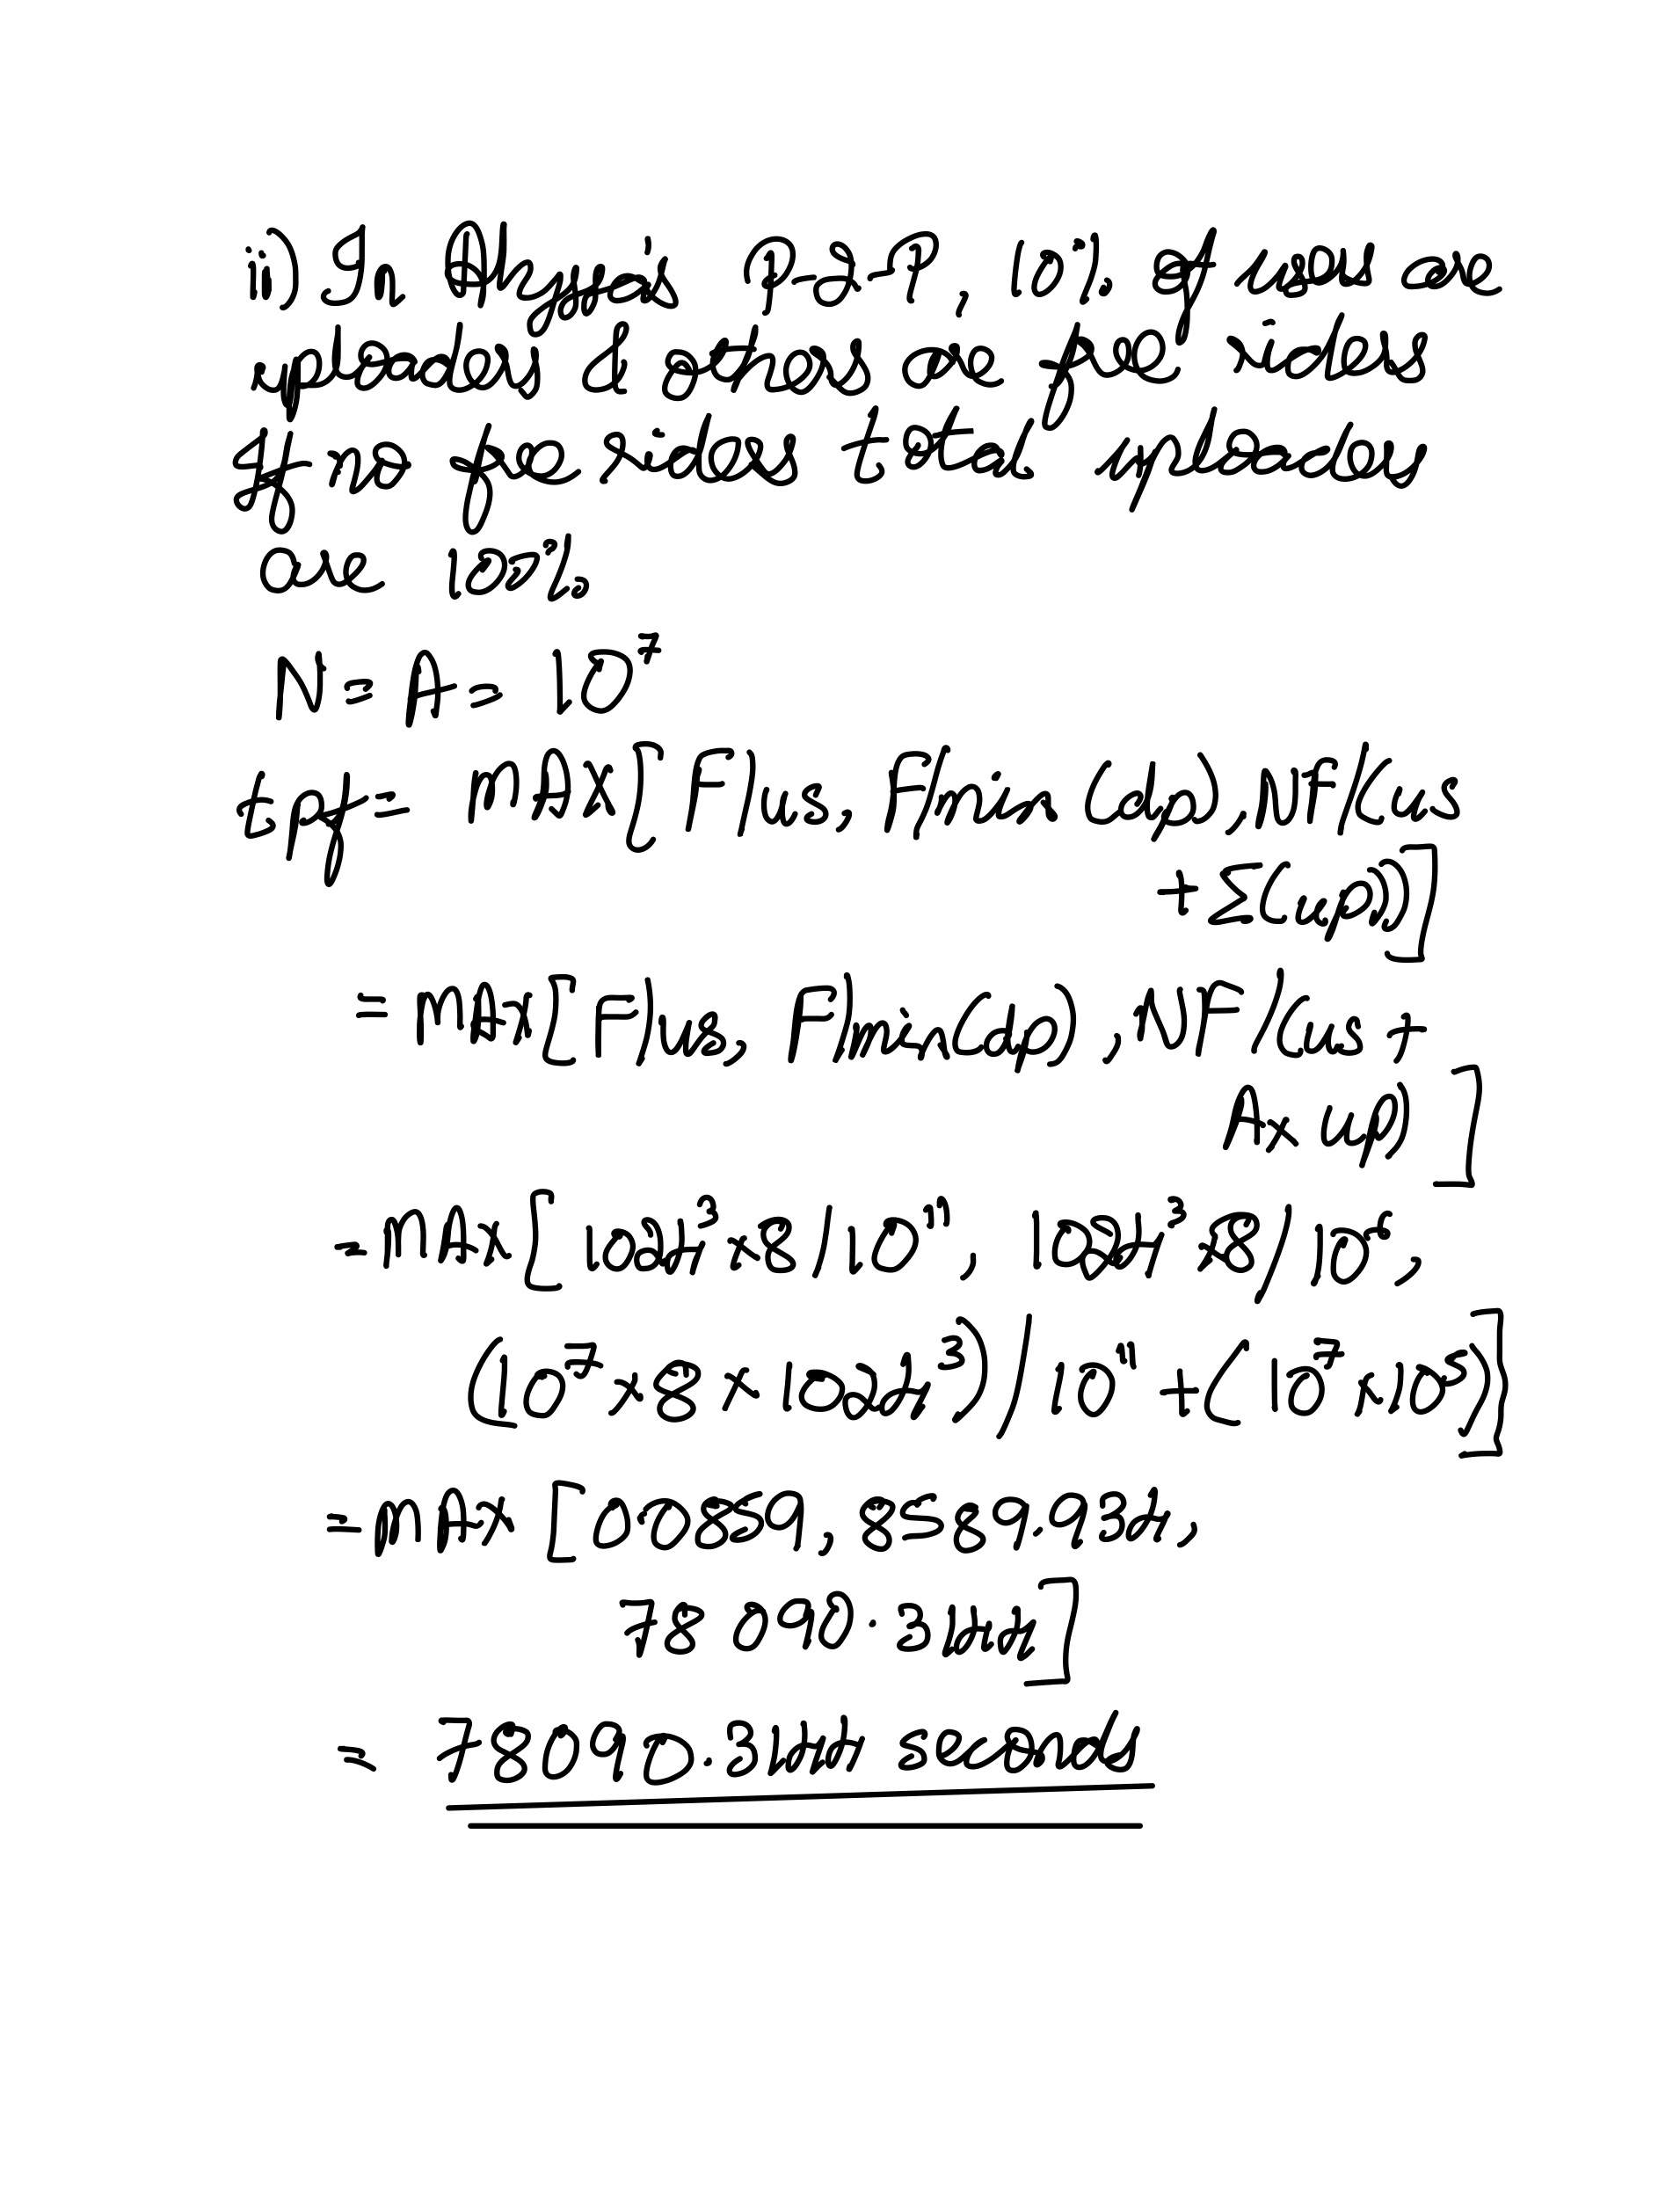 ii) In Abhyay's P2P, 10% of users are
uploading & others are free riders
If no free riders total uploaders
are 100%
N = A = 10⁷
tp2p = MAX[F/us, F/min(dp), NF/(us
+ Σ(up))]
= MAX[F/us, F/min(dp), NF/(us +
A x up)]
= MAX[1024³x8/10¹¹, 1024³x8/10⁶,
(10⁷ x 8 x 1024³)/10¹¹ + (10⁷x10⁵)]
= MAX [0.0859, 8589.934,
78 090.3144]
= 78090.3144 seconds